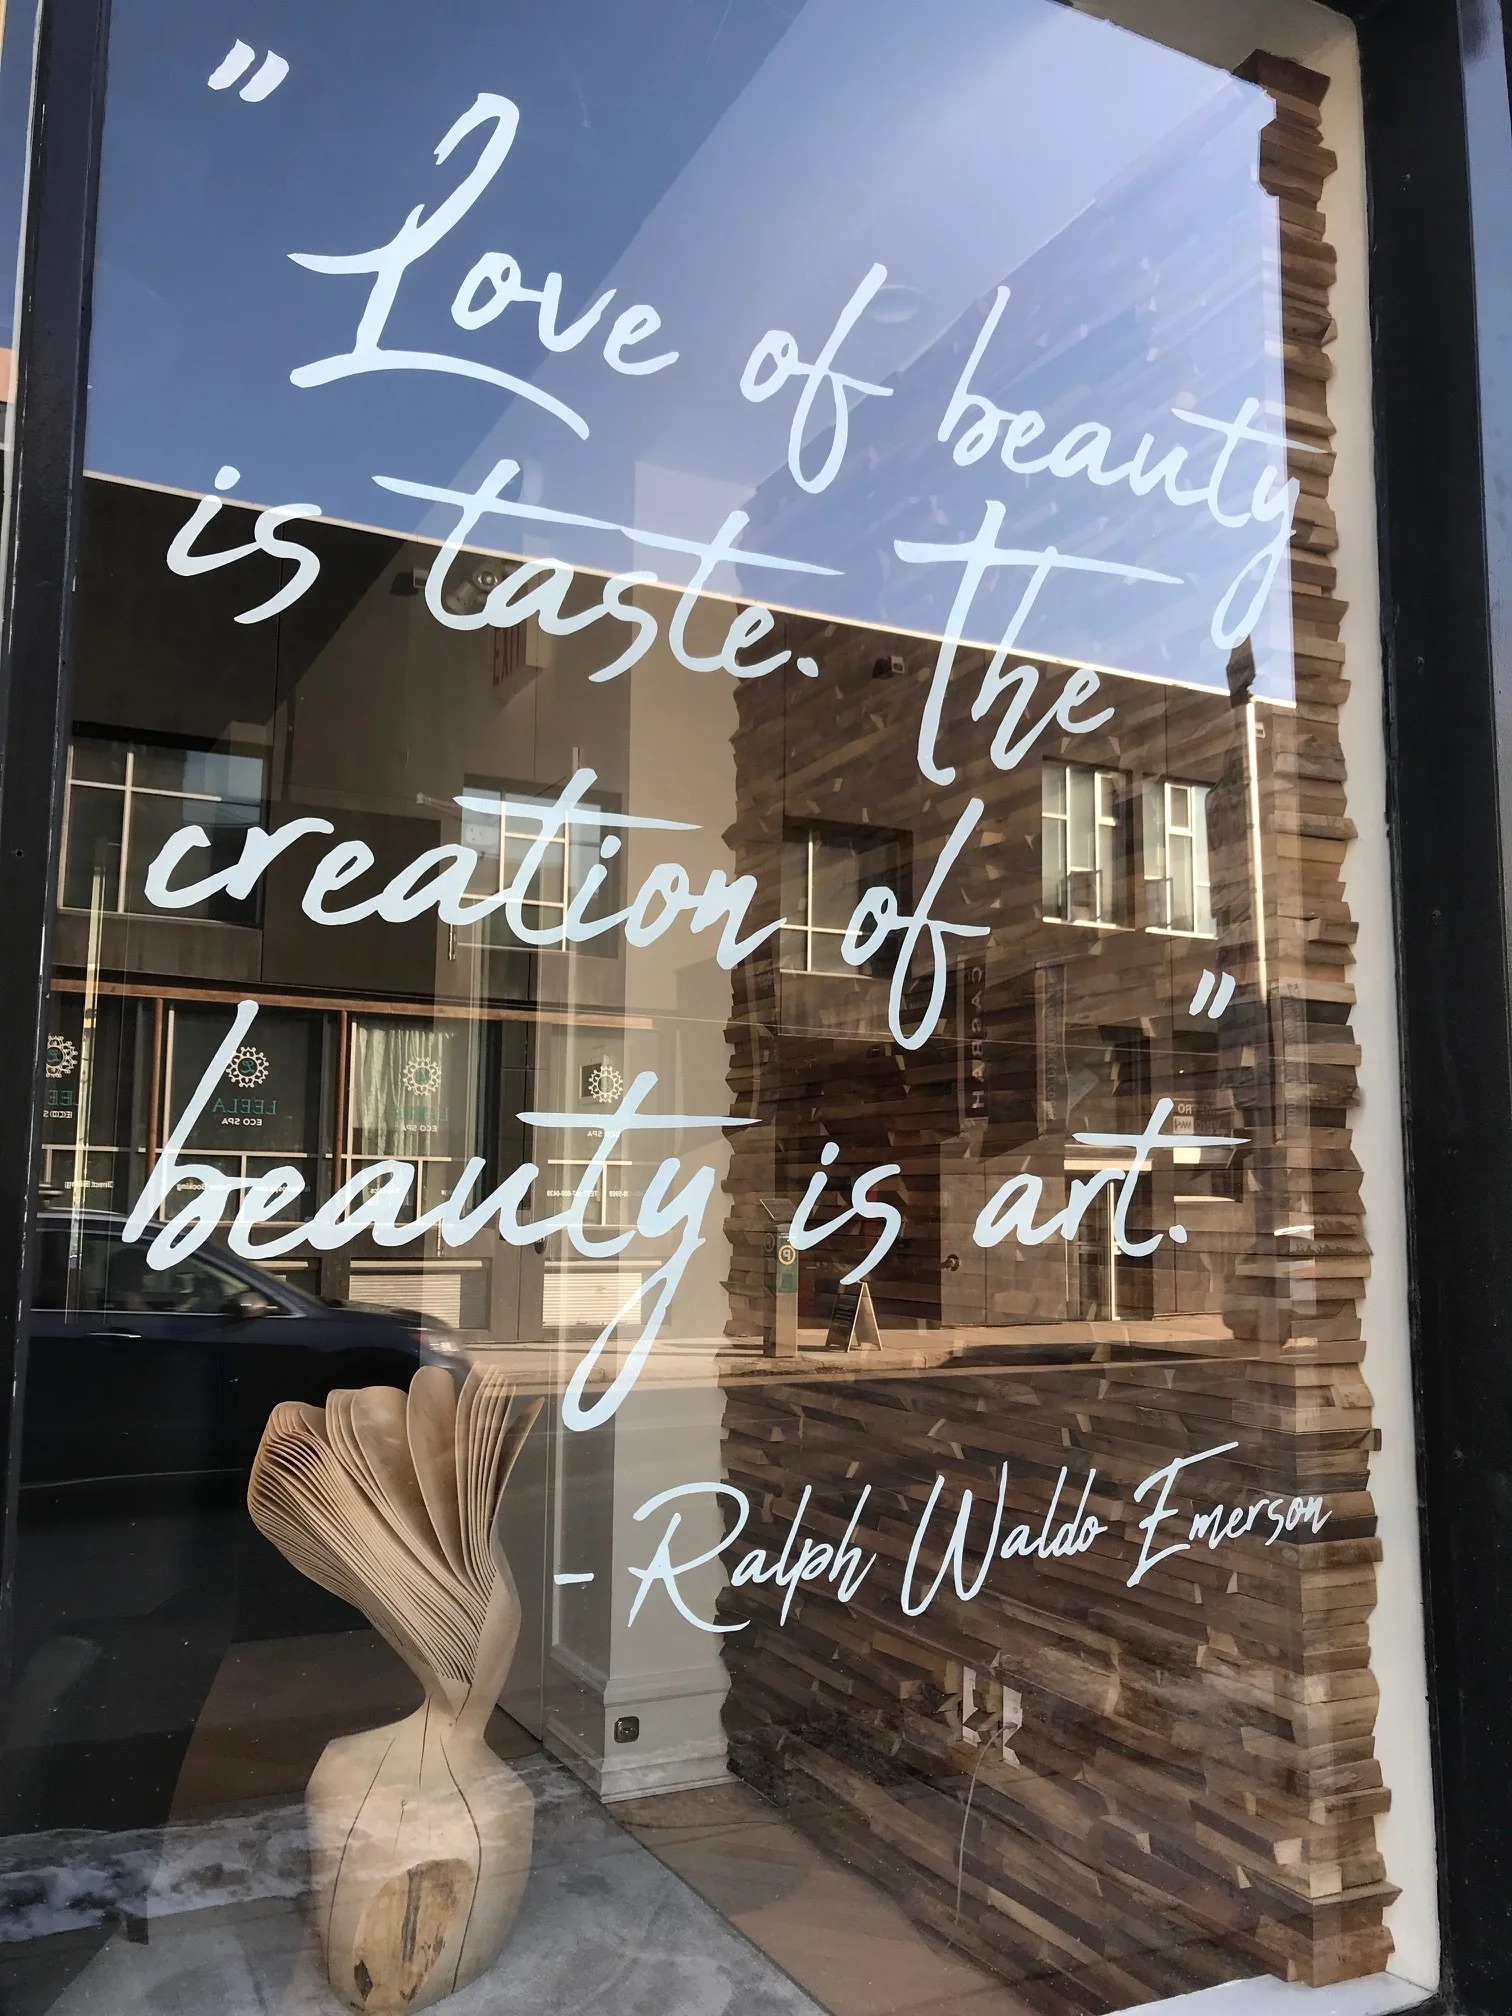 " Love of beauty
is taste. The
creation of
beauty is art. "
- Ralph Waldo Emerson
EXIT
LEELA
ECO SPA
ECO SPA
ECO SPA
CASBAH
Online Booking
P